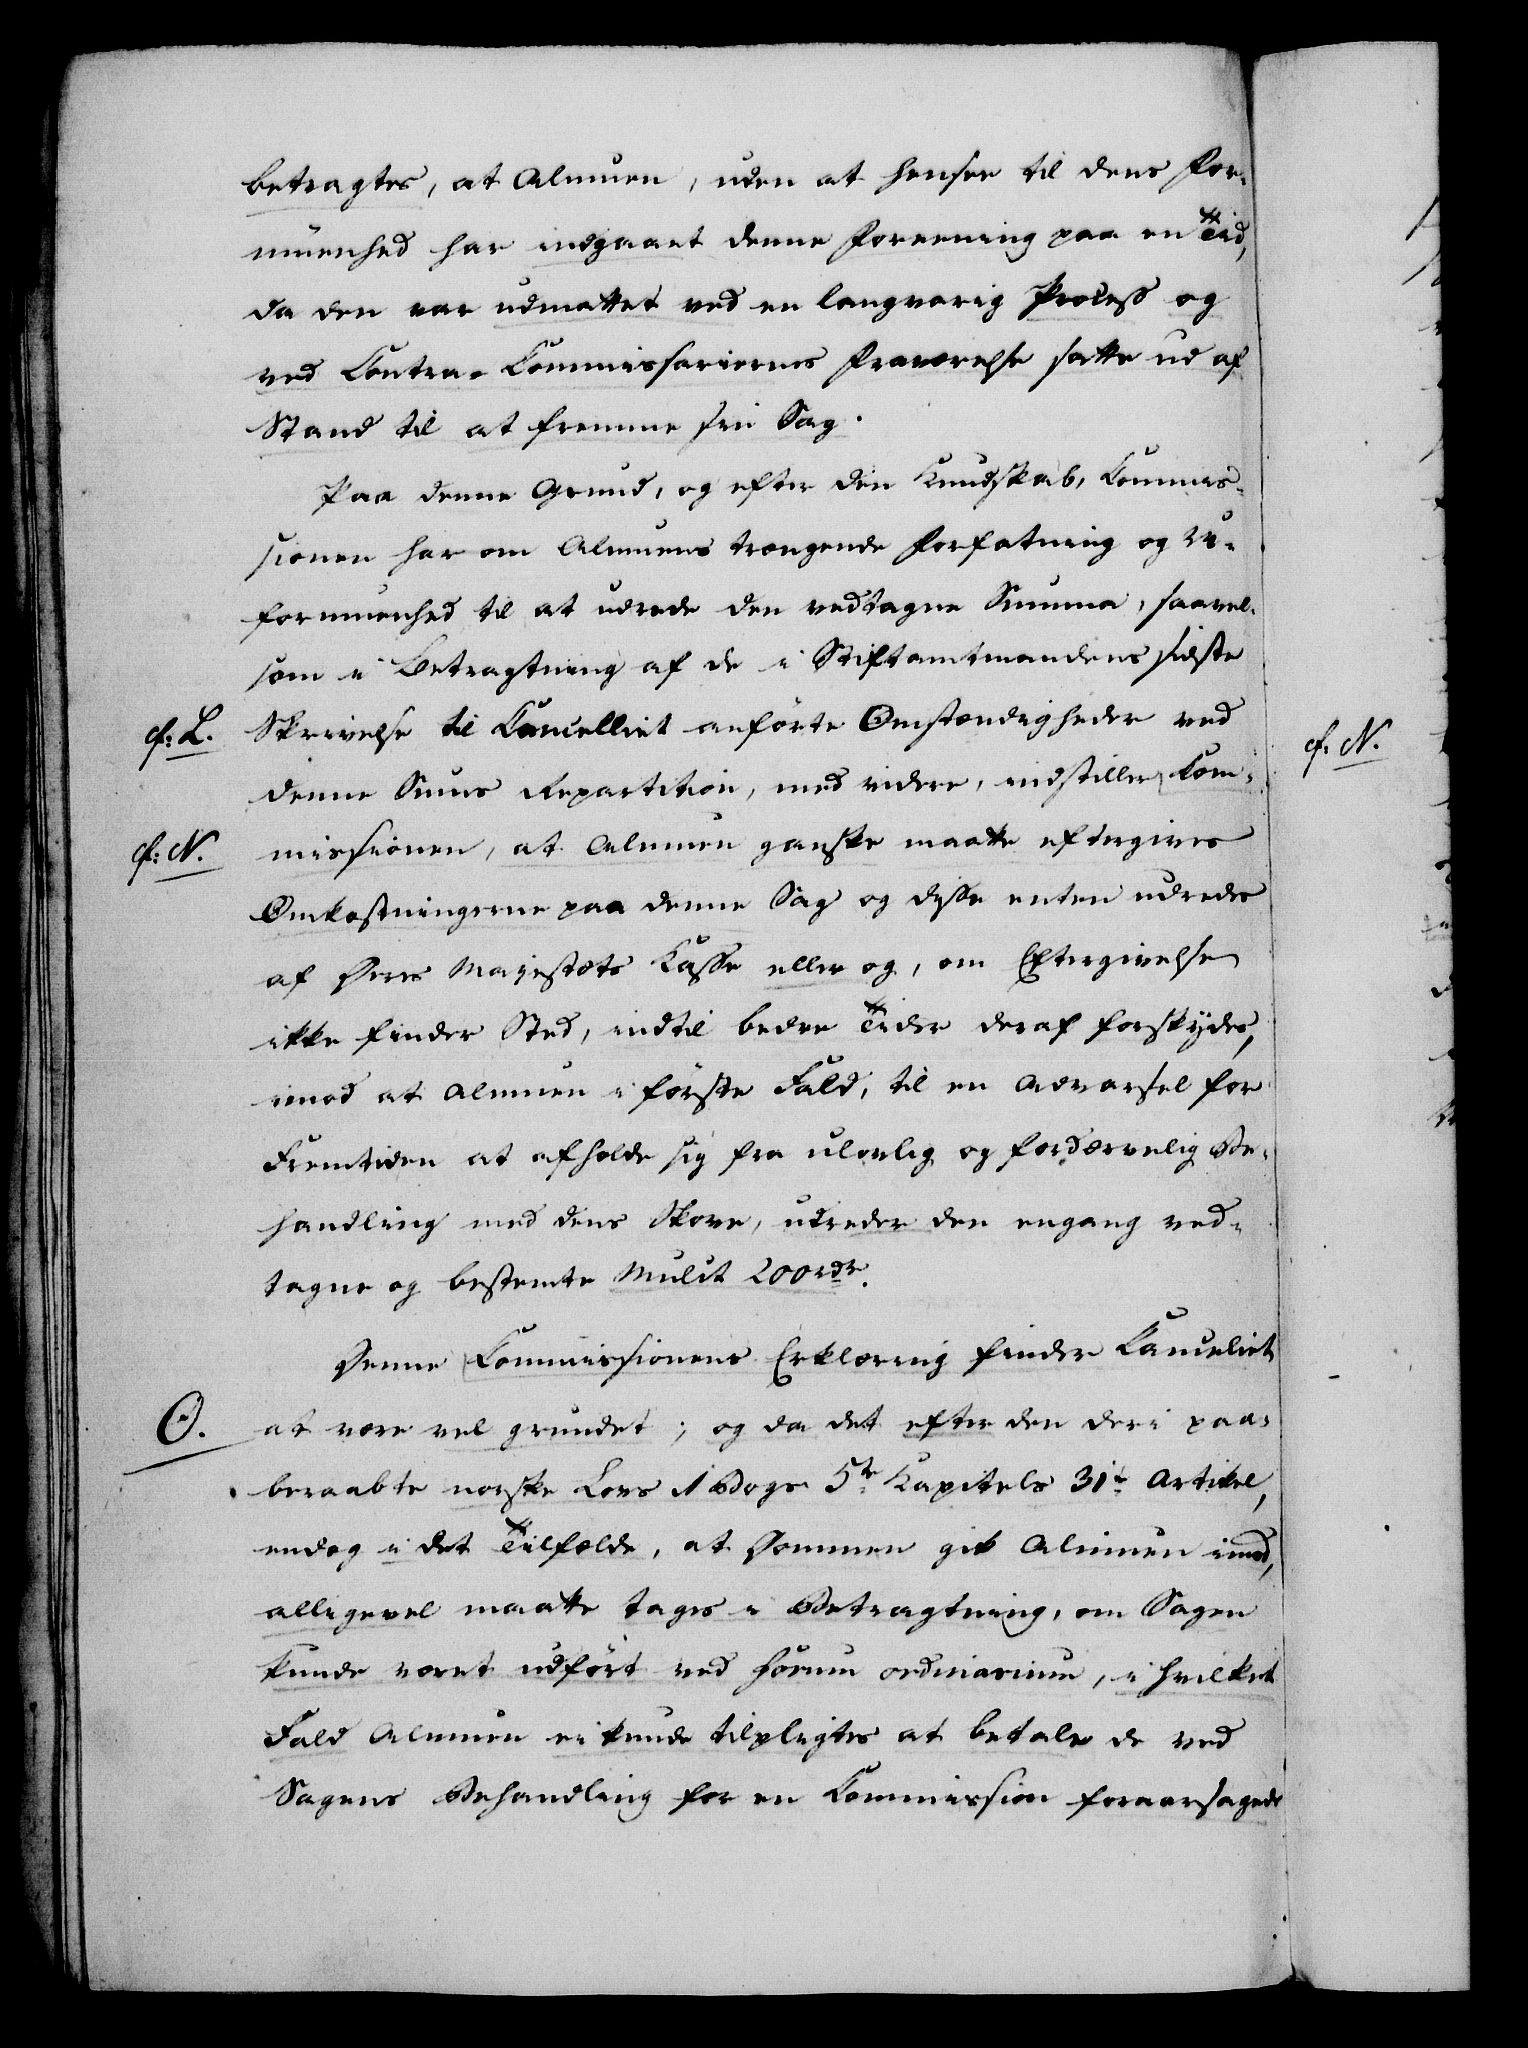 betragtes, at Almuen, uden at hensee til dens For-
muenhed har indgaaet denne Foreening paa en Tid,
da den var udmattet ved en langvarig Process og
ved Contra-Commissariernes Fraværelse satte ud af
Stand til at fremme sin Sag.
Paa denne Grund, og efter den Kundskab, Commis-
sionen har om Almuens trængende Forfatning og U-
formuenhed til at udrede den vedtagne Summa, saavel-
som i Betragtning af de i Stiftamtmandens sidste
cf: L. Skrivelse til Cancelliet anførte Omstændigheder ved
cf. N.
denne Sums Repartition, med videre, indstiller Com-
cf: N. missionen, at Almuen ganske maatte eftergives
Omkostningerne paa denne Sag og disse enten udredes
af Deres Majestæts Kasse eller og, om Eftergivelse
ikke finder Sted, indtil bedre Tider deraf forskydes,
imod at Almuen i første Fald, til en Advarsel for
Fremtiden at afholde sig fra ulovlig og fordærvelig Be-
handling med dens Skove, udreder den engang ved-
tagne og bestemte Mulct 200 rdr.
Denne Commissionens Erklæring finder Cancelliet
O. at være vel grundet; og da det efter den deri paa-
beraabte norske Lovs 1 Bogs 5te Kapitels 31te Artikel,
endog i det Tilfælde, at Dommen gik Almuen imod,
alligevel maatte tages i Betragtning, om Sagen
kunde været udført ved forum ordinarium, i hvilket
Fald Almuen ei kunde tilpligtes at betale de ved
Sagens Behandling for en Commission foraarsagede